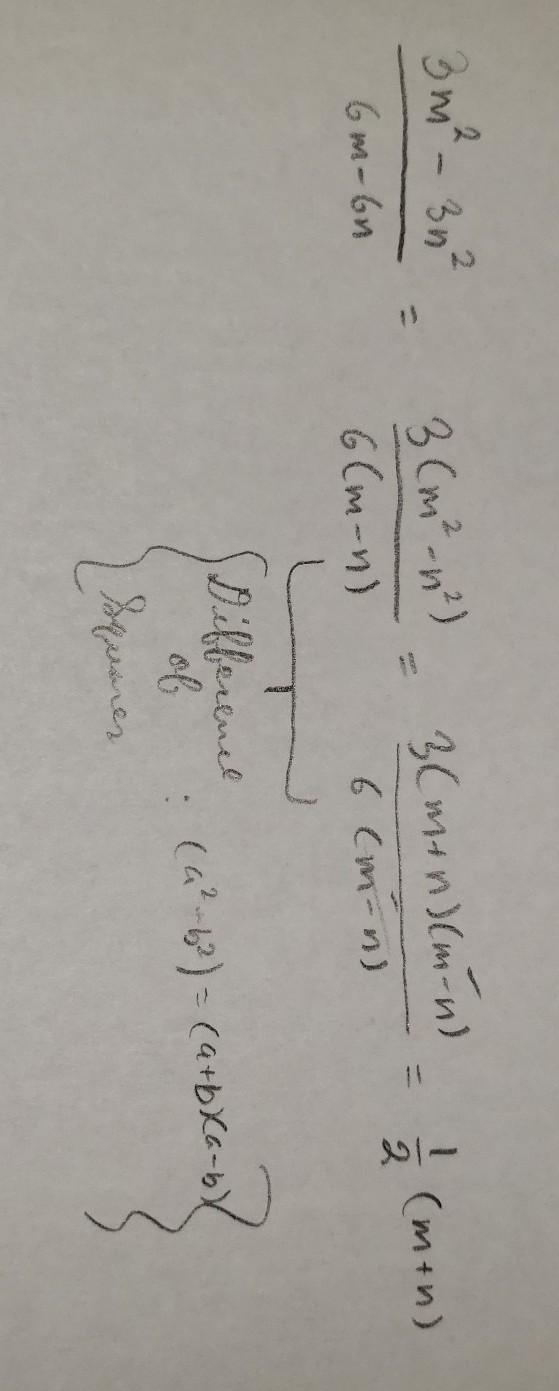 3m² - 3n² / 6m - 6n = 3(m² - n²) / 6(m - n) = 3(m + n)(m - n) / 6(m - n) = 1/2 (m + n)
Difference of Squares : (a² - b²) = (a+b)(a-b)